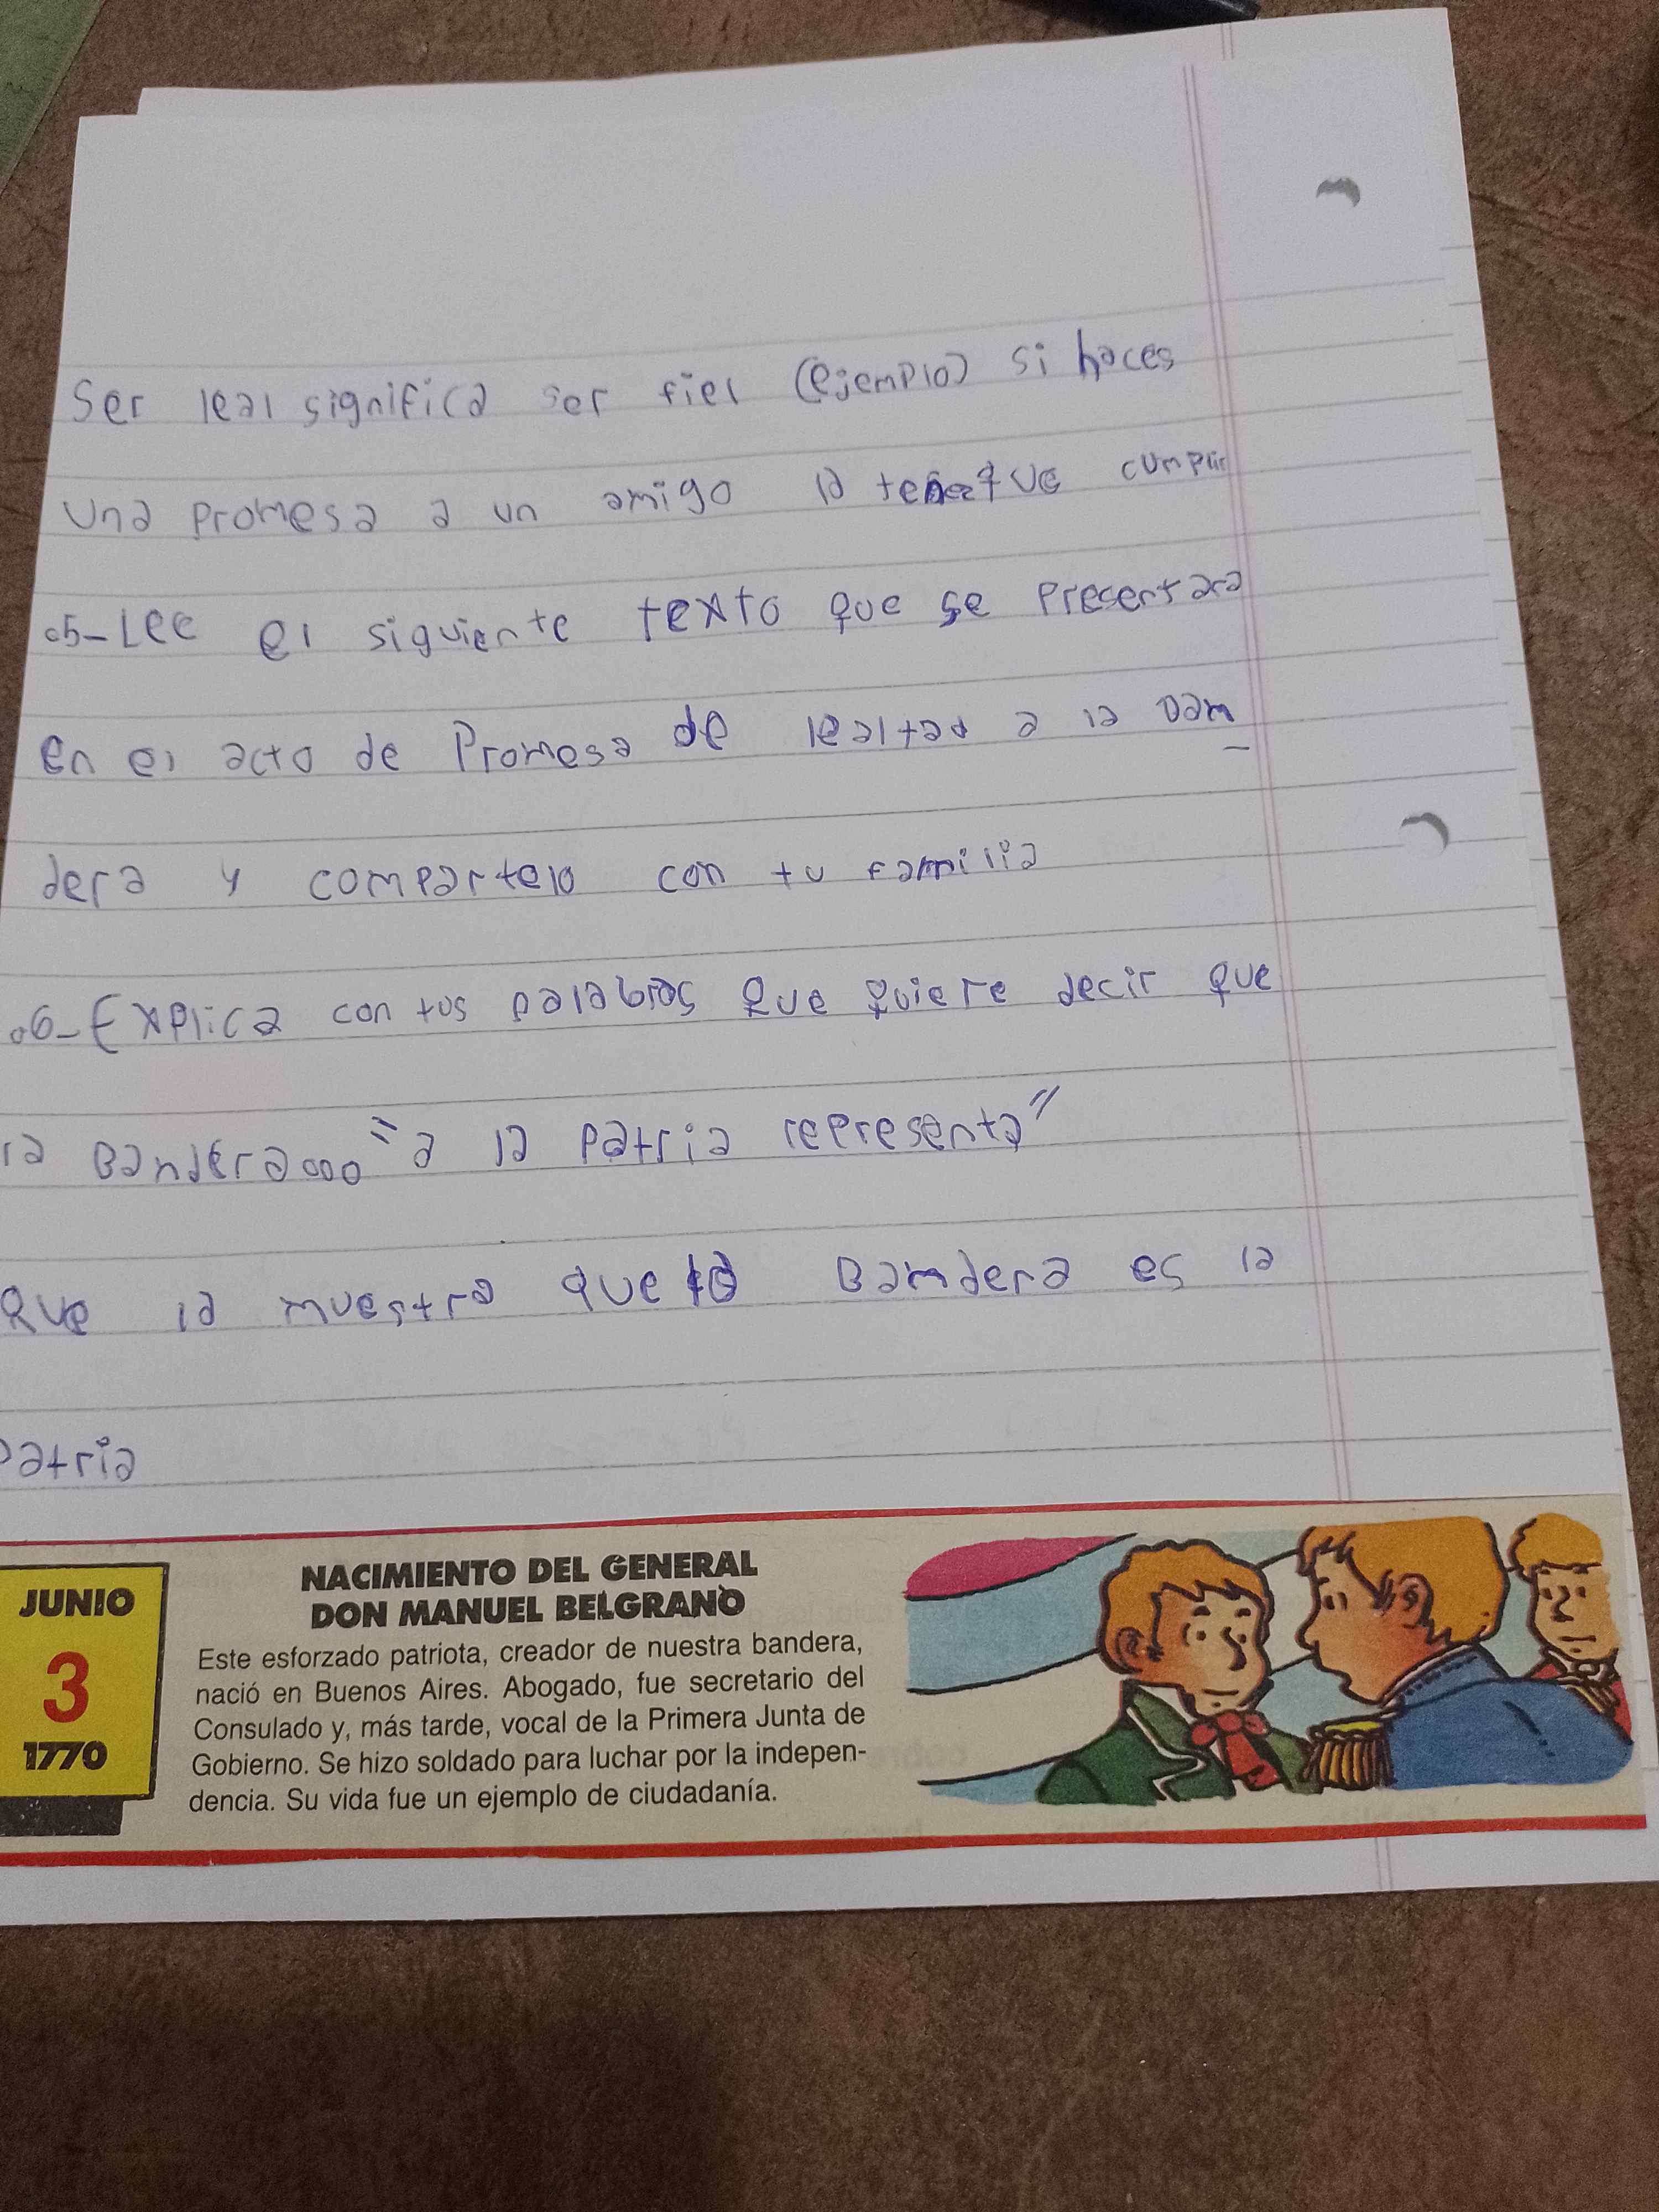 Ser leal significa ser fiel (ejemplo) si haces
una promesa a un amigo la que cumplir
.5-Lee el siguiente texto que se presentara
en el acto de Promesa de lealtad a la ban_
dera y compartelo con tu familia
.6-Explica con tus palabras que quiere decir que
la Bandera... "a la patria representa"
que la muestra que la Bamdera es la
patria
JUNIO
3
1770
NACIMIENTO DEL GENERAL
DON MANUEL BELGRANO
Este esforzado patriota, creador de nuestra bandera,
nació en Buenos Aires. Abogado, fue secretario del
Consulado y, más tarde, vocal de la Primera Junta de
Gobierno. Se hizo soldado para luchar por la indepen-
dencia. Su vida fue un ejemplo de ciudadanía.